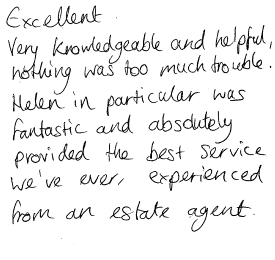 Excellent.
Very knowledgeable and helpful,
nothing was too much trouble.
Helen in particular was
fantastic and absolutely
provided the best service
we've ever, experienced
from an estate agent.